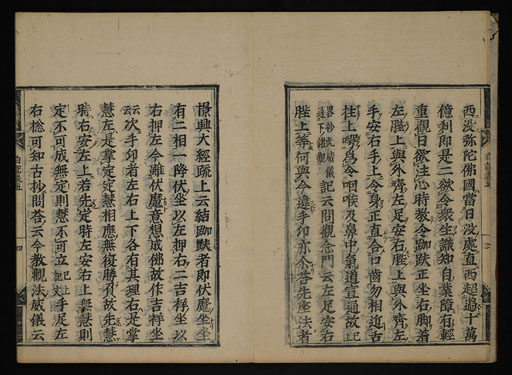 西沒弥陀佛國當日沒處直西超過十萬
億刹即是二欲令衆生識知自業障有輕
重觀日欲注心時教令跏趺正坐右脚著
左䏶上與外齊左足安右䏶上與外齊左
手安右手上令身正直合口齒勿相近舌
柱上腭爲令咽喉及鼻中氣道宣通故記
云問觀念門云左足安右
䏶上等何與今違手印亦介答先座法者
璟興大經疏上云結跏趺者即伏魔坐坐
有二相一降伏坐以左押右二吉祥坐以
右押左今雖伏魔意想成佛故作吉祥坐
云次手印者左右上下各有其理右是掌
慧左是掌定定慧相應無復勝於故先慧
時右安左上若先定時左安右上無慧則
定不可成無定則慧不可立記上手足左
右捻可知古抄問荅云今教觀法威儀云